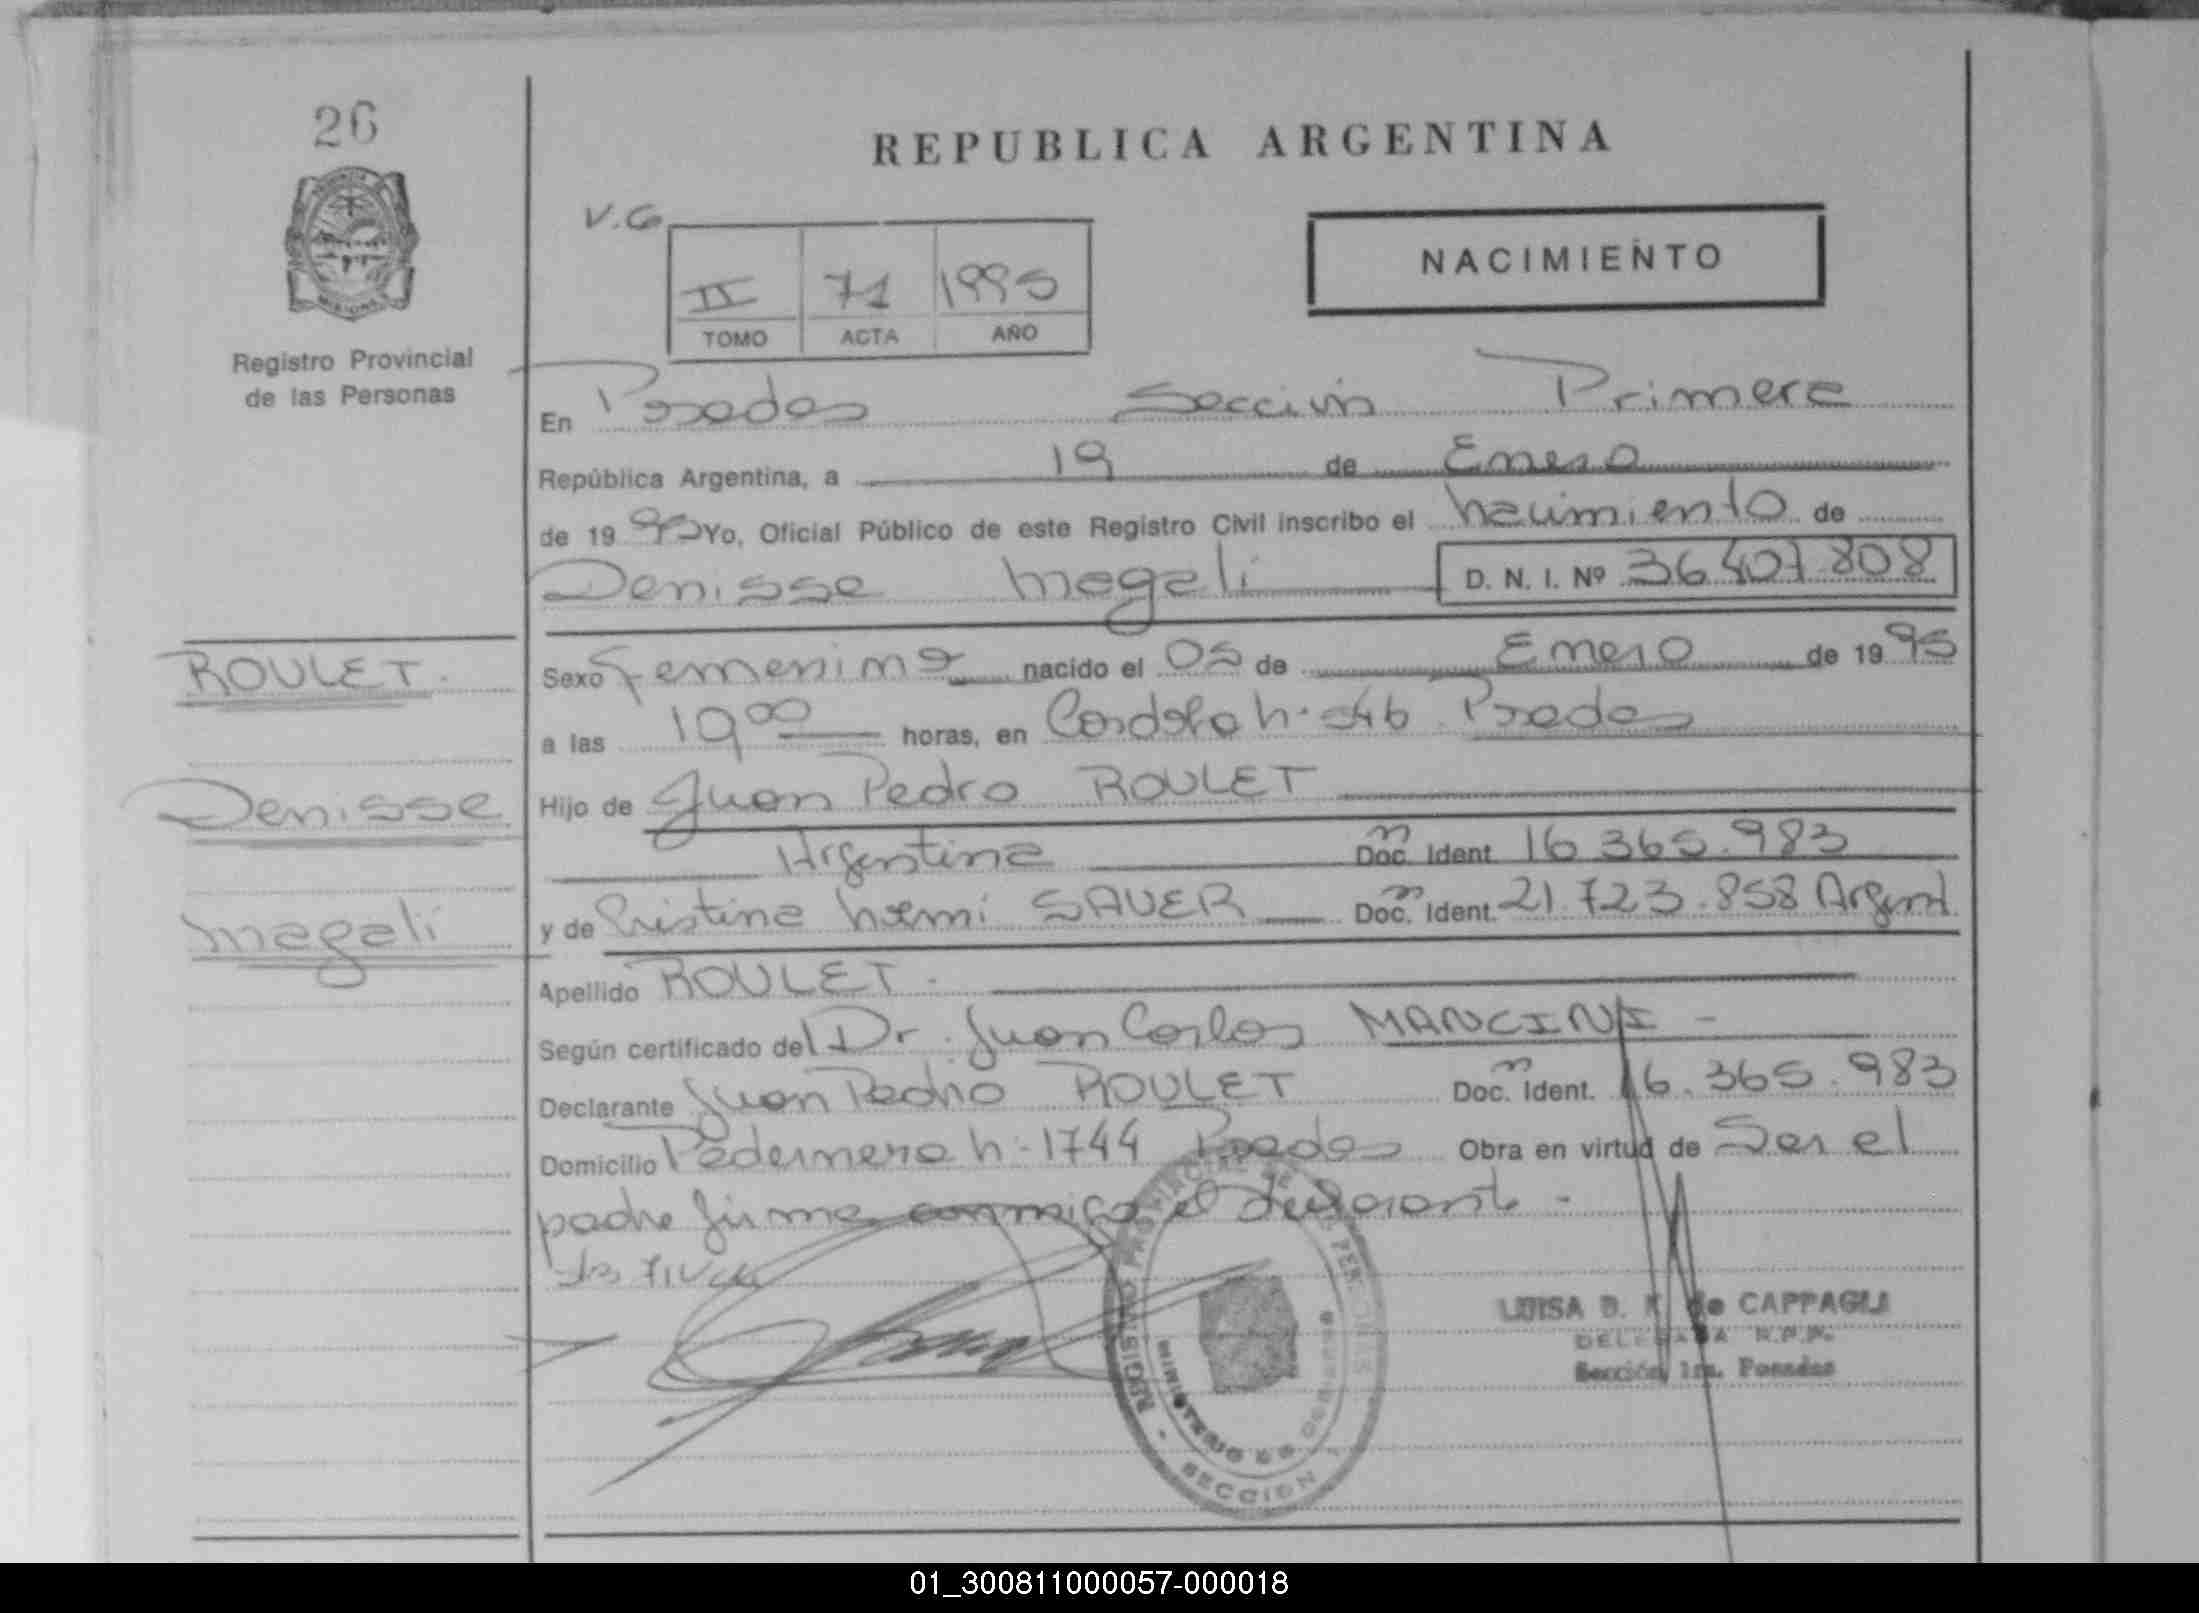 26
REPUBLICA ARGENTINA
V.G
II 71 1995
TOMO ACTA AÑO
NACIMIENTO
Registro Provincial
de las Personas
En Posadas Sección Primera
República Argentina, a 19 de Enero
de 1995 Yo, Oficial Público de este Registro Civil inscribo el nacimiento de
Denisse Magali D. N. I. Nº 36.407.808
ROULET.
Denisse
Magali
Sexo Femenino nacido el 05 de Enero de 1995
a las 19 00 horas, en Cordoba N. 546 Posadas
Hijo de Juan Pedro ROULET
Argentina Doc. Ident. 16.365.983
y de Cristina Noemi SAUER Doc. Ident. 21.723.858 Argent.
Apellido ROULET.
Según certificado del Dr. Juan Carlos MANCINI -
Declarante Juan Pedro ROULET Doc. Ident. 16.365.983
Domicilio Pedernera N. 1744 Posadas Obra en virtud de Ser el
padre firma conmigo el declarante -
LUISA B. de CAPPAGLI
DELEGADA R.P.P.
Sección 1ra. Posadas
REGISTRO PROVINCIAL DE LAS PERSONAS - SECCION 1
MINISTERIO DE GOBIERNO
01_300811000057-000018